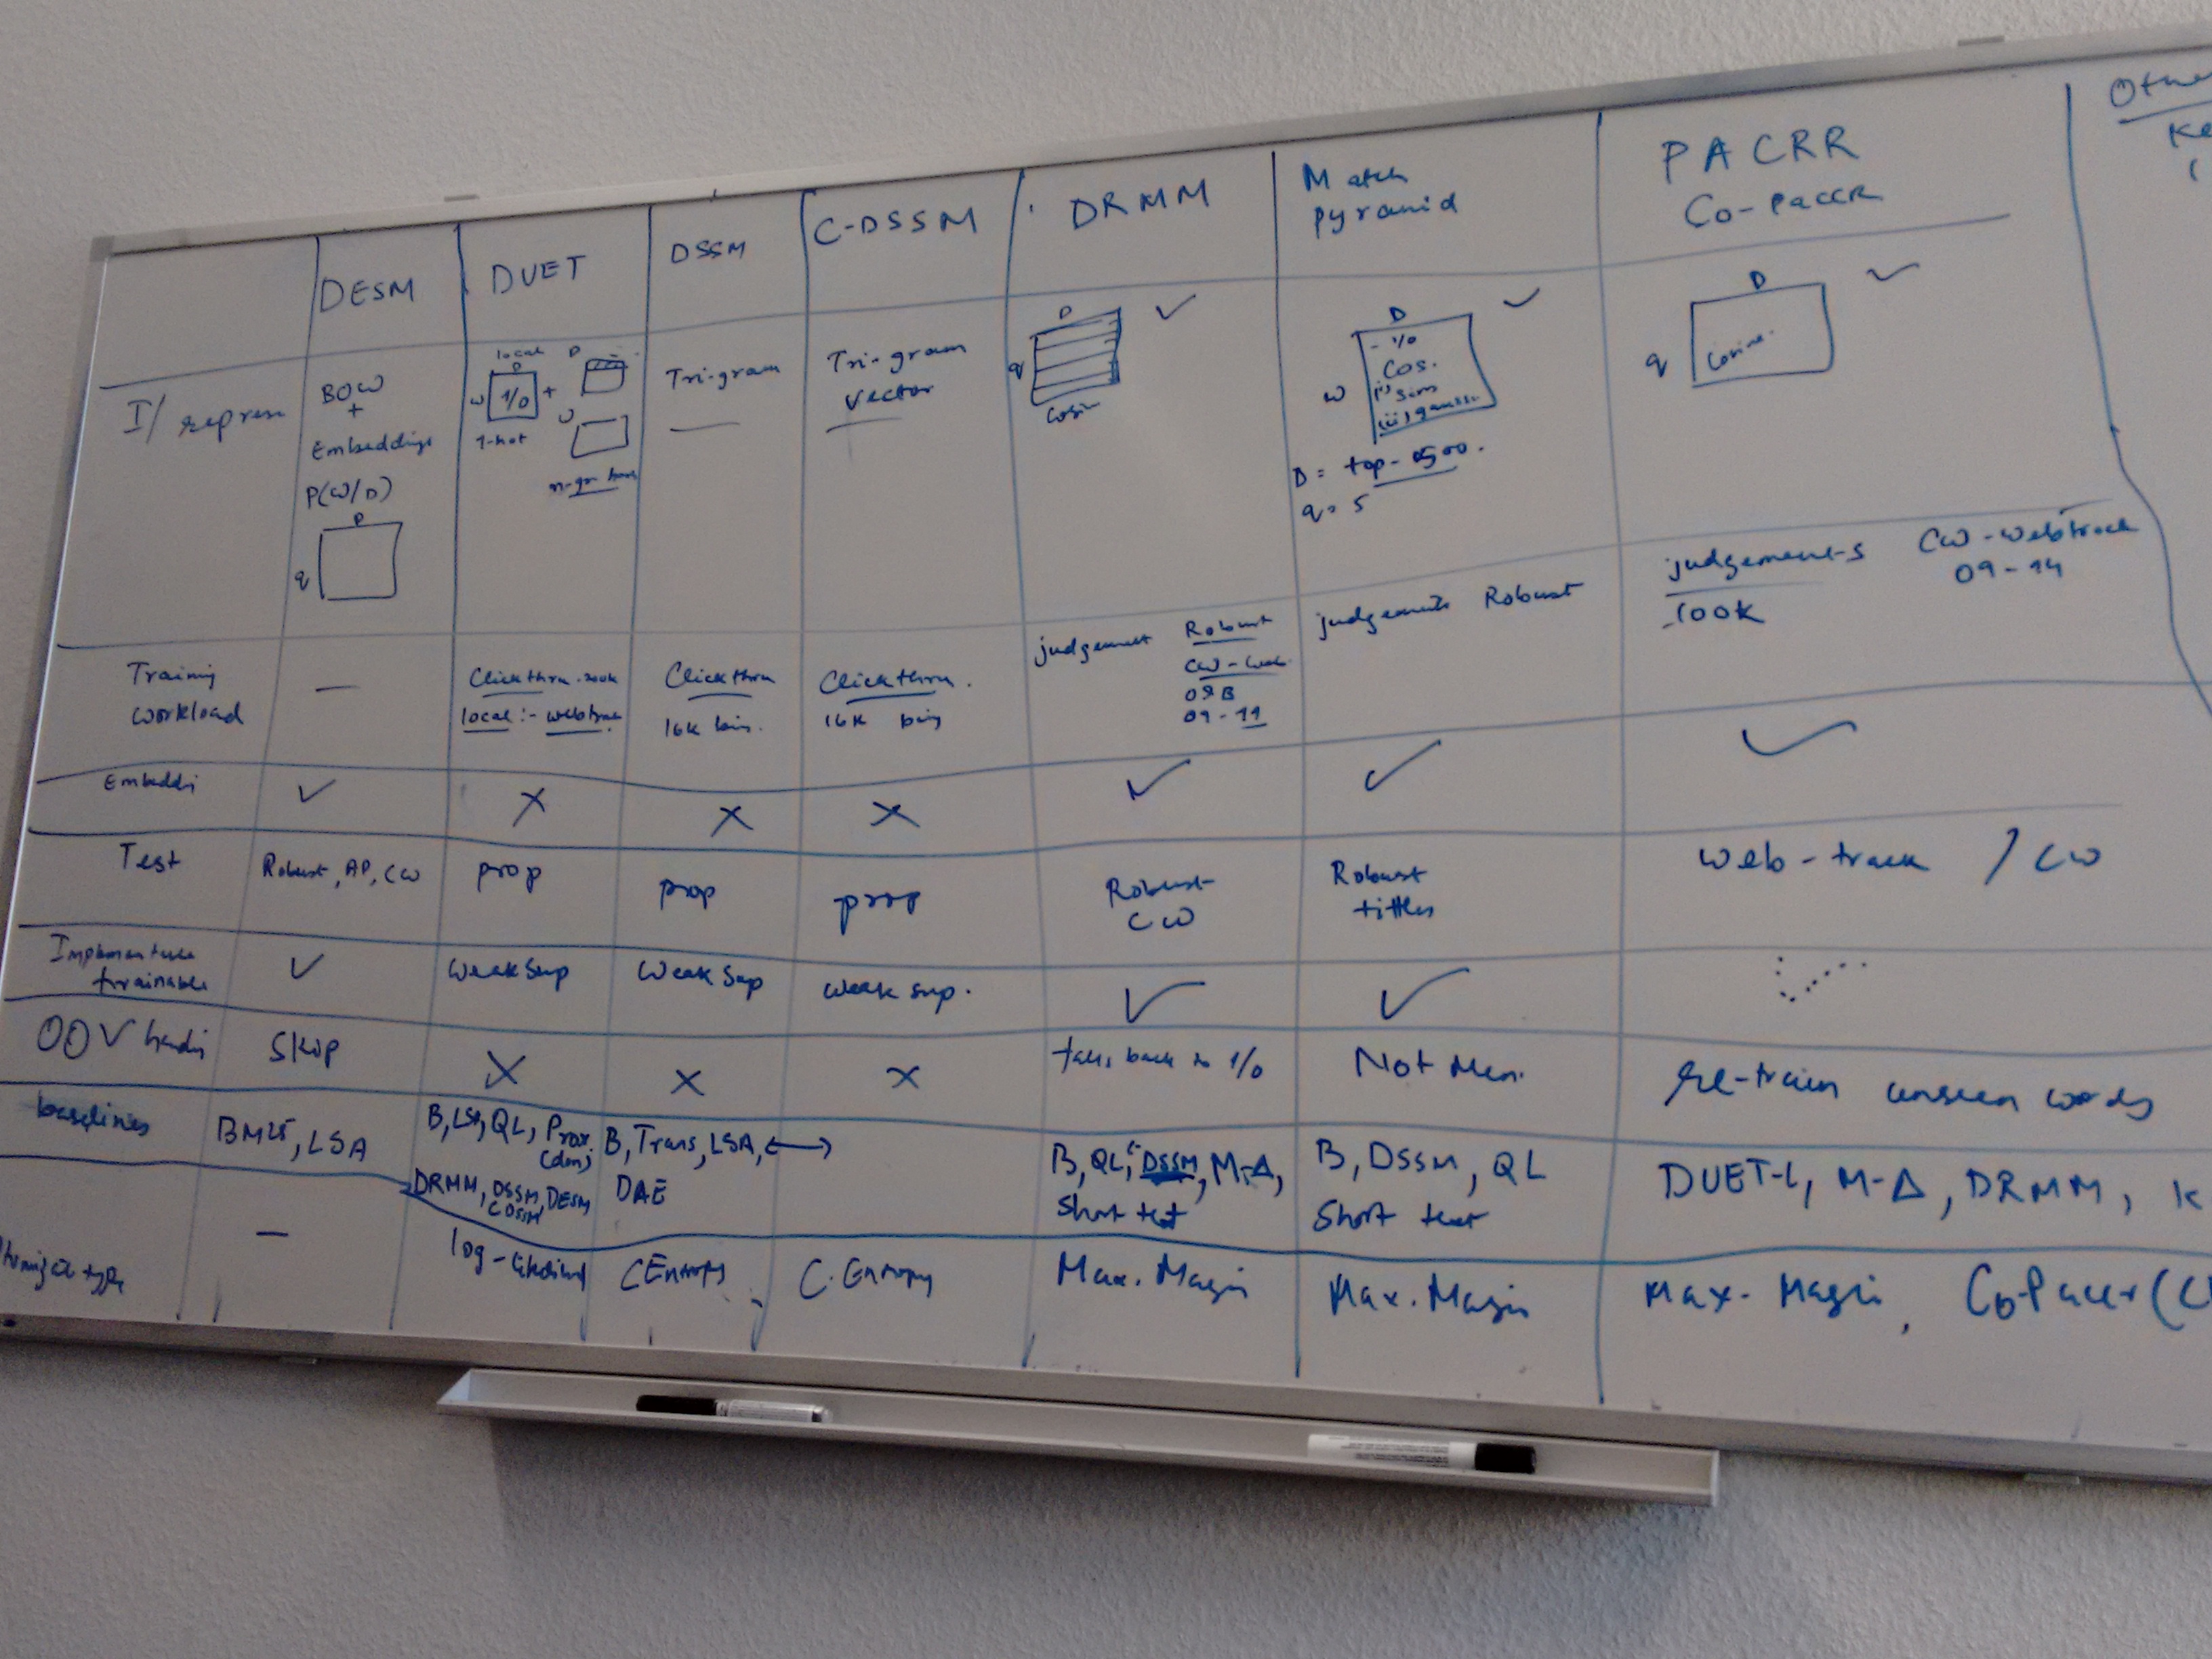 DESM
DUET
DSSM
C-DSSM
DRMM
Match
pyramid
PACRR
Co-PACCR
I/ repren
BOW
+
Embeddings
P(W/D)
D
q
local
D
w 1/0 +
1-hot
D
w
Tri-gram
Tri-gram
vector
D
q
cosi
D
w
- 1/0
Cos.
D = top-500.
q = 5
D
q
cosine.
Training
workload
—
Clickthru.200k
local :- webtrac
Clickthru
16K bin.
Clickthru.
16K bin
judgement
Robust
CW-web
09B
09-11
judgements Robust
judgement-s
100K
CW-webtrack
09-14
Embeddi
✓
X
X
X
✓
✓
✓
Test
Robust, AP, CW
prop
prop
prop
Robust
CW
Robust
tittles
web-track / CW
trainable
✓
weak Sup
weak Sup
weak sup.
✓
✓
OOV handi
Skip
X
X
X
falls back to 1/0
Not Men.
re-train unseen words
baselines
BM25, LSA
B, LSA, QL, Prox.
DRMM, DSSM, DESM
CDSSM
B, Trans, LSA, ↔
DAE
B, QL, DSSM, M-Δ,
Short text
B, DSSM, QL
Short text
DUET-L, M-Δ, DRMM, K
type
—
log-likelihd
CEntropy
C.Entropy
Max. Margin
Max. Margin
Max. Margin, Co-Paccr (